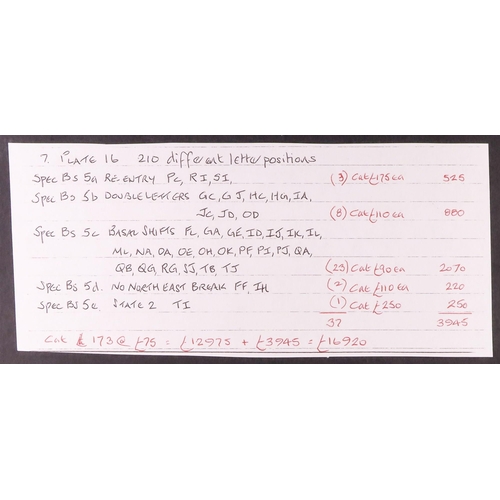 7. PLATE 16 210 different letter positions
Spec BS 5a RE-ENTRY PC, RI, SI, (3) Cat £175 ea 525
Spec BS 5b DOUBLE LETTERS GC, GJ, HC, HG, IA,
JC, JD, OD (8) Cat £110 ea 880
Spec BS 5c BASAL SHIFTS FL, GA, GE, ID, IJ, IK, IL,
ML, NA, OA, OE, OH, OK, PF, PI, PJ, QA,
QB, QG, RG, SJ, TB, TJ (23) Cat £90 ea 2070
Spec BS 5d. NO NORTH EAST BREAK FF, IH (2) Cat £110 ea 220
Spec BS 5e STATE 2 TI (1) Cat £250 250
37 3945
Cat 173 @ £75 = £12975 + £3945 = £16920